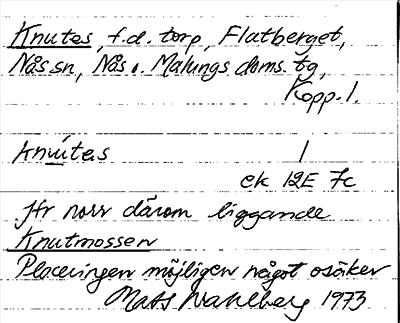 Knutes, f.d. torp, Flatberget,
Nås sn, Nås o. Malungs doms. tg,
Kopp. l.
Knutes /
ek 12E 7c
Jfr norr därom liggande
Knutmossen
Placeringen möjligen något osäker
Mats Wahlberg 1973